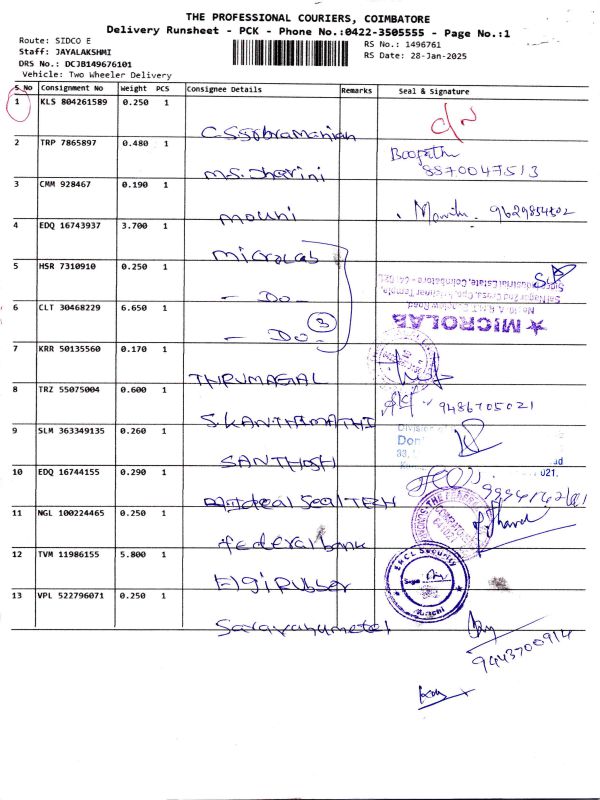 THE PROFESSIONAL COURIERS, COIMBATORE
Delivery Runsheet - PCK - Phone No.:0422-3505555 - Page No.:1
Route: SIDCO E
RS No.: 1496761
Staff: JAYALAKSHMI
RS Date: 28-Jan-2025
DRS No.: DCJB149676101
Vehicle: Two Wheeler Delivery
S No Consignment No Weight PCS Consignee Details Remarks Seal & Signature
1 KLS 804261589 0.250 1 C.S.Subramanian
2 TRP 7865897 0.480 1 M.S. Dharini Boopathi 8870047513
3 CMM 928467 0.190 1 mouni 9629854802
4 EDQ 16743937 3.700 1 microlab
5 HSR 7310910 0.250 1 - Do -
6 CLT 30468229 6.650 1 - Do - 3 ★ MICROLAB
7 KRR 50135560 0.170 1 THIRUMAGAL
8 TRZ 55075004 0.600 1 S.KANTHIMATHI 9486705021
9 SLM 363349135 0.260 1 SANTHOSH
10 EDQ 16744155 0.290 1 Ideal Seal TECH
11 NGL 100224465 0.250 1 federal bank
12 TVM 11986155 5.800 1 Elgi Rubber Security
13 VPL 522796071 0.250 1 Saravanametel 9443700914